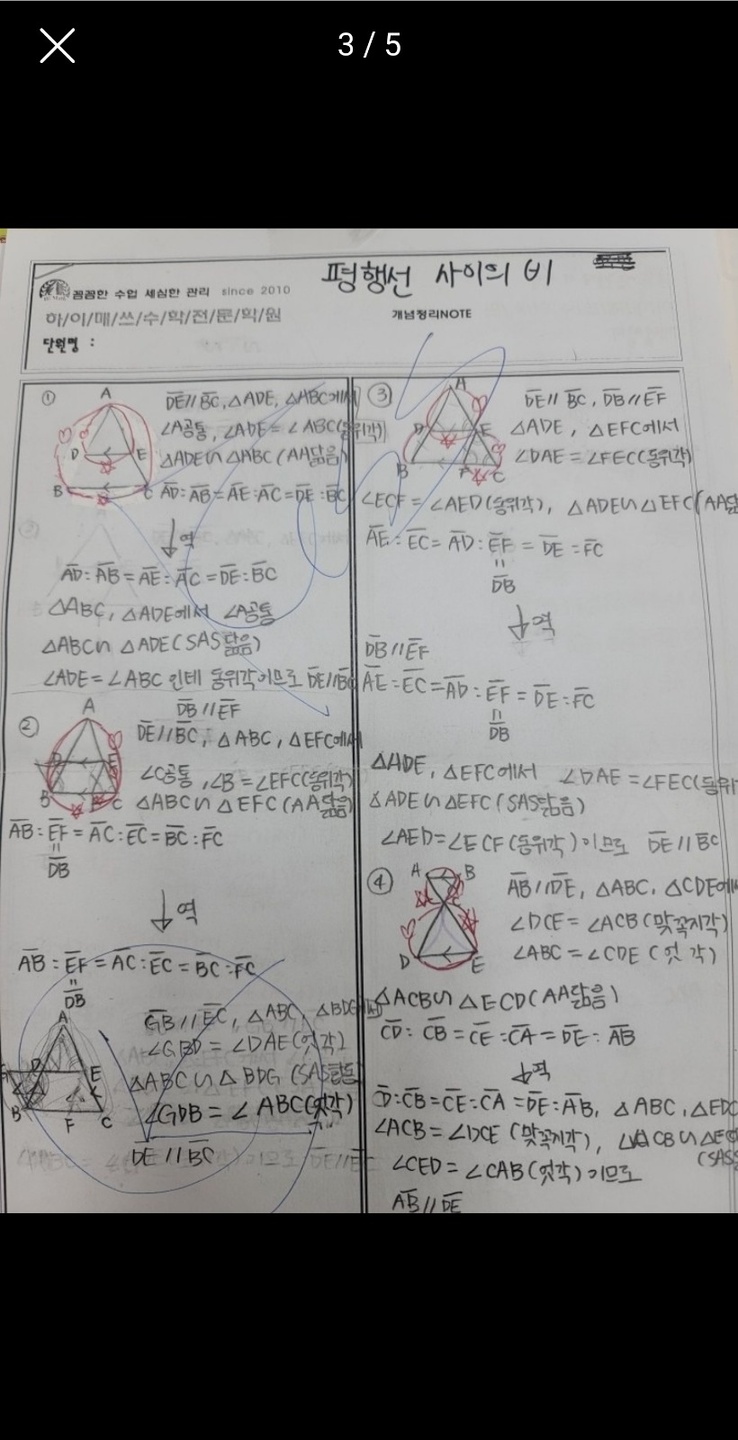 3 / 5
평행선 사이의 비
꼼꼼한 수업 세심한 관리 since 2010
하/이/메/쓰/수/학/전/문/학/원
개념정리NOTE
단원명 :
①
A
D E
B C
D̅E̅//B̅C̅, △ADE, △ABC에서
∠A공통, ∠ADE=∠ABC(동위각)
△ADE∽△ABC(AA닮음)
A̅D̅:A̅B̅=A̅E̅:A̅C̅=D̅E̅:B̅C̅
↓역
A̅D̅:A̅B̅=A̅E̅:A̅C̅=D̅E̅:B̅C̅
△ABC, △ADE에서 ∠A공통
△ABC∽△ADE(SAS닮음)
∠ADE=∠ABC 인테 동위각이므로 D̅E̅//B̅C̅
②
A
D E
B F C
D̅B̅//E̅F̅
D̅E̅//B̅C̅, △ABC, △EFC에서
∠C공통, ∠B=∠EFC(동위각)
△ABC∽△EFC(AA닮음)
A̅B̅:E̅F̅=A̅C̅:E̅C̅=B̅C̅:F̅C̅
=
D̅B̅
↓역
A̅B̅:E̅F̅=A̅C̅:E̅C̅=B̅C̅:F̅C̅
=
D̅B̅
A
G D E
B F C
G̅B̅//E̅C̅, △ABC, △BDG
∠GBD=∠DAE(엇각)
△ABC∽△BDG (SAS
∠GDB=∠ABC(엇각)
D̅E̅//B̅C̅
③
A
D E
B F C
D̅E̅//B̅C̅, D̅B̅//E̅F̅
△ADE, △EFC에서
∠DAE=∠FEC(동위각)
∠ECF=∠AED(동위각), △ADE∽△EFC(AA닮
A̅E̅:E̅C̅=A̅D̅:E̅F̅=D̅E̅:F̅C̅
=
D̅B̅
↓역
D̅B̅//E̅F̅
A̅E̅:E̅C̅=A̅D̅:E̅F̅=D̅E̅:F̅C̅
=
D̅B̅
△ADE, △EFC에서 ∠DAE=∠FEC(동위
△ADE∽△EFC(SAS닮음)
∠AED=∠ECF(동위각)이므로 D̅E̅//B̅C̅
④
A B
D E
A̅B̅//D̅E̅, △ABC, △CDE에
∠DCE=∠ACB(맞꼭지각)
∠ABC=∠CDE(엇각)
△ACB∽△ECD(AA닮음)
C̅D̅:C̅B̅=C̅E̅:C̅A̅=D̅E̅:A̅B̅
↓역
D̅:C̅B̅=C̅E̅:C̅A̅=D̅E̅:A̅B̅, △ABC, △EDC
∠ACB=∠DCE(맞꼭지각), △ACB∽△E
(SAS
∠CED=∠CAB(엇각)이므로
A̅B̅//D̅E̅